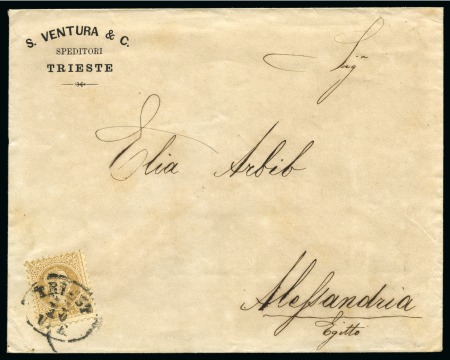 S. VENTURA & C.
SPEDITORI
TRIESTE
Sig.n
Elia Arbib
Alessandria
Egitto
TRIEST